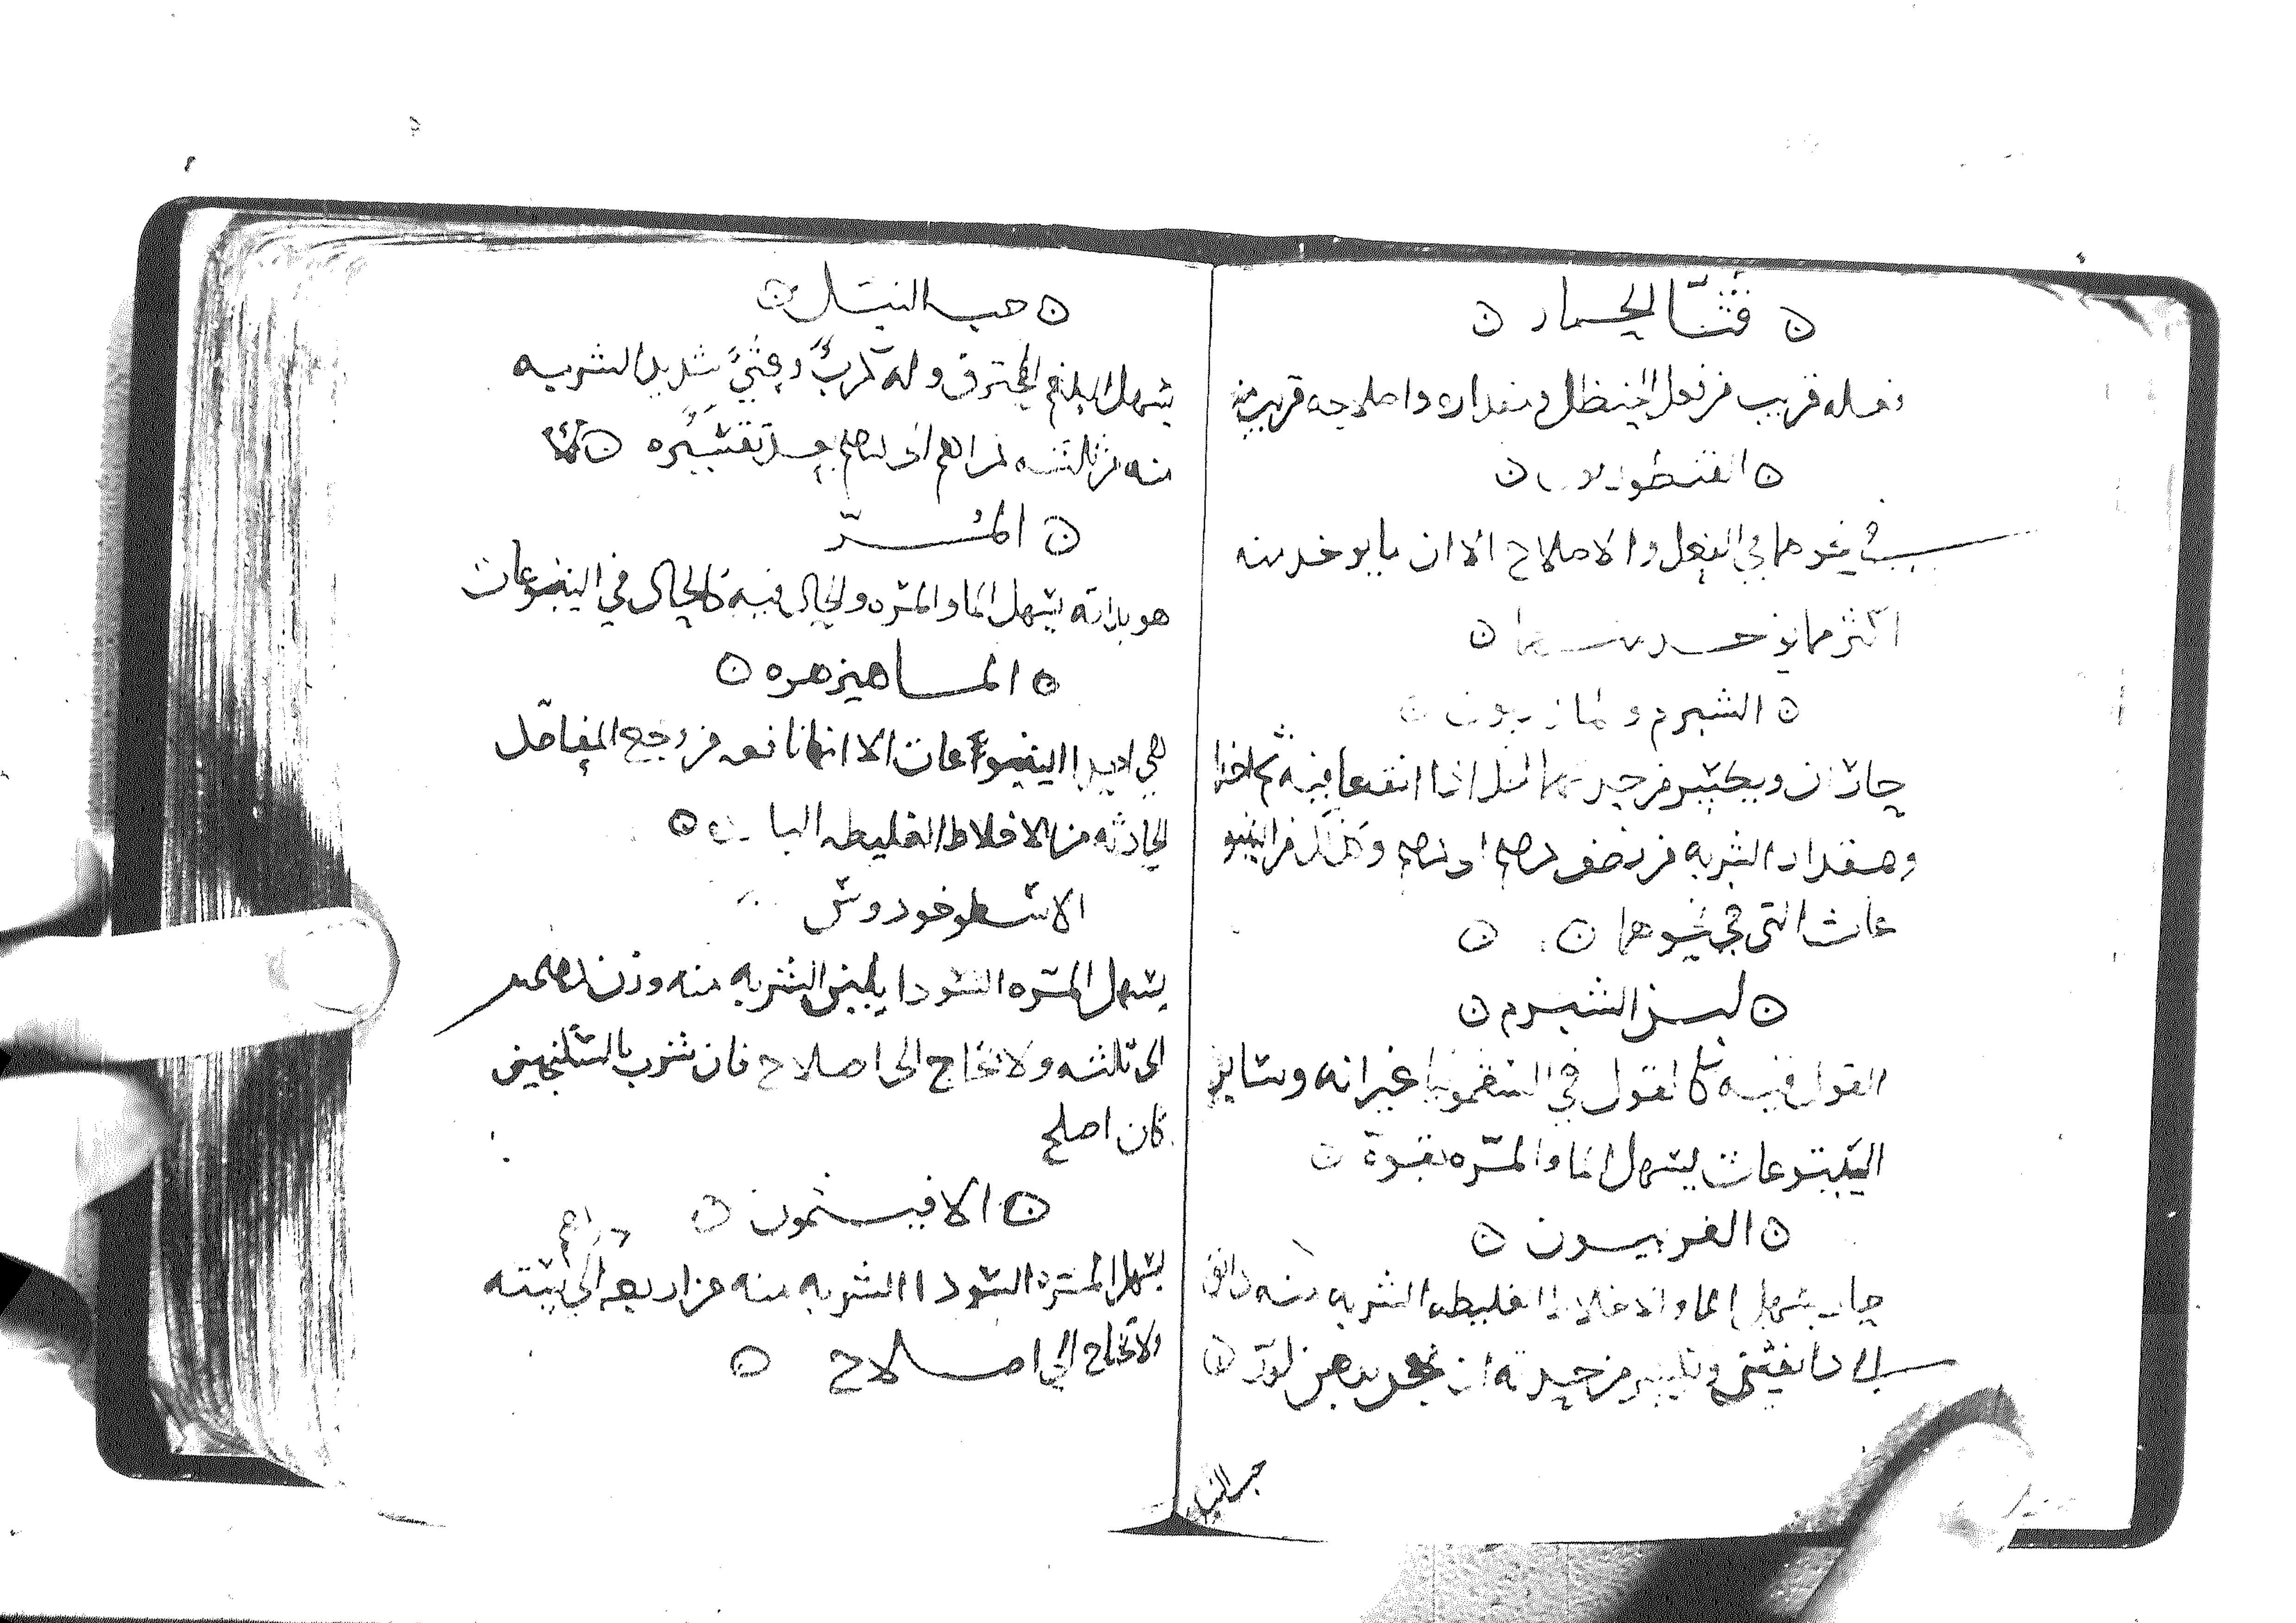 قثا الحمار
وفعله قريب من فعل الحنظل ومقداره واصلاحه قريب منه
القنطوريون
في نحوهما في الفعل والاصلاح الا ان ما يوخد منه
اكثر مما يوخد منهما
الشبرم والمازريون
حاران ويكسر من حدتهما الخل اذا انقعا فيه ثم اخدا
ومقدار الشربه من نصف درهم الى درهم وكذلك من اليتو
عات التي في نحوهما
لبن الشبرم
القول فيه كالقول في السقمونيا غير انه وساير
اليتوعات يسهل الما والمره بقوة
الفربيون
حار يسهل الما والاخلاط الغليظه الشربه منه دانق
الى دانقين ويكسر من حدته ان بدهن لوز
حب النيل
حب النيل
يسهل البلغم المحترق وله كرب وغثي شديد الشربه
منه من ثلثه دراهم الى درهم بعد تقشيره
المر
هو بداته يسهل الما والمره والحال فيه كالحال في اليتوعات
الماهيزهره
هي احد اليتوعات الا انها نافعه من وجع المفاصل
الحادثه من الاخلاط الغليظه البارده
الاسطوخودوس
يسهل المره السودا بلين الشربه منه وزن درهمين
الى ثلثه ولا تحتاج الى اصلاح فان شرب بالسكنجبين
كان اصلح
الافيثمون
يسهل المره السودا الشربه منه من اربعه الى سته دراهم
ولا تحتاج الى اصلاح